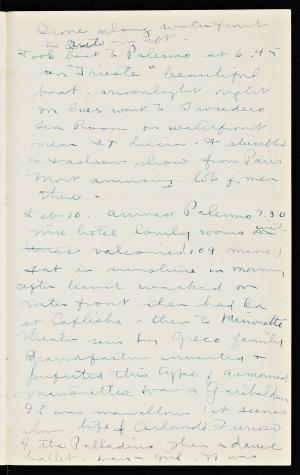 Drove along waterfront
in auto
Took boat to Palermo at 6.45
on "Trieste" beautiful
boat. moonlight night
on Tues went to Trocadero
Tea Room on waterfront
near St Lucia. & stumbled
on Fashion show from Paris
Most amusing lots of men
there.
Feb 10. Arrived Palermo 7.30
nice hotel lovely rooms with
balconies, 109 mine,
sat in sunshine in morning
after lunch walked on
water front then had tea
at Caflishi - then to Marionette
theater run by Greco family
Grandfather invented &
perfected this type of armoured
marionettes was a Garibaldian
It was marvellous! at scenes
from life of Orlando Furioso
& the Palladins then a dance
ballet. man & girl It was